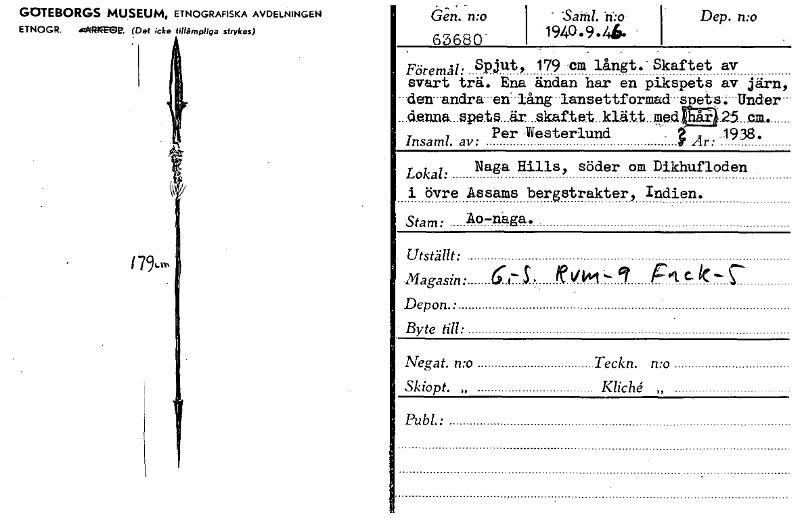 GÖTEBORGS MUSEUM, ETNOGRAFISKA AVDELNINGEN
ETNOGR. ARKEOL. (Det icke tillämpliga strykes)
179cm
Gen. n:o Saml. n:o Dep. n:o
63680 1940.9.46.
Föremål: Spjut, 179 cm långt. Skaftet av
svart trä. Ena ändan har en pikspets av järn,
den andra en lång lansettformad spets. Under
denna spets är skaftet klätt med hår 25 cm.
Insaml. av: Per Westerlund ? År: 1938.
Lokal: Naga Hills, söder om Dikhufloden
i övre Assams bergstrakter, Indien.
Stam: Ao-naga.
Utställt:
Magasin: G.-S. Rum-9 Fack-5
Depon.:
Byte till:
Negat. n:o Teckn. n:o
Skiopt. „ Kliché „
Publ.: